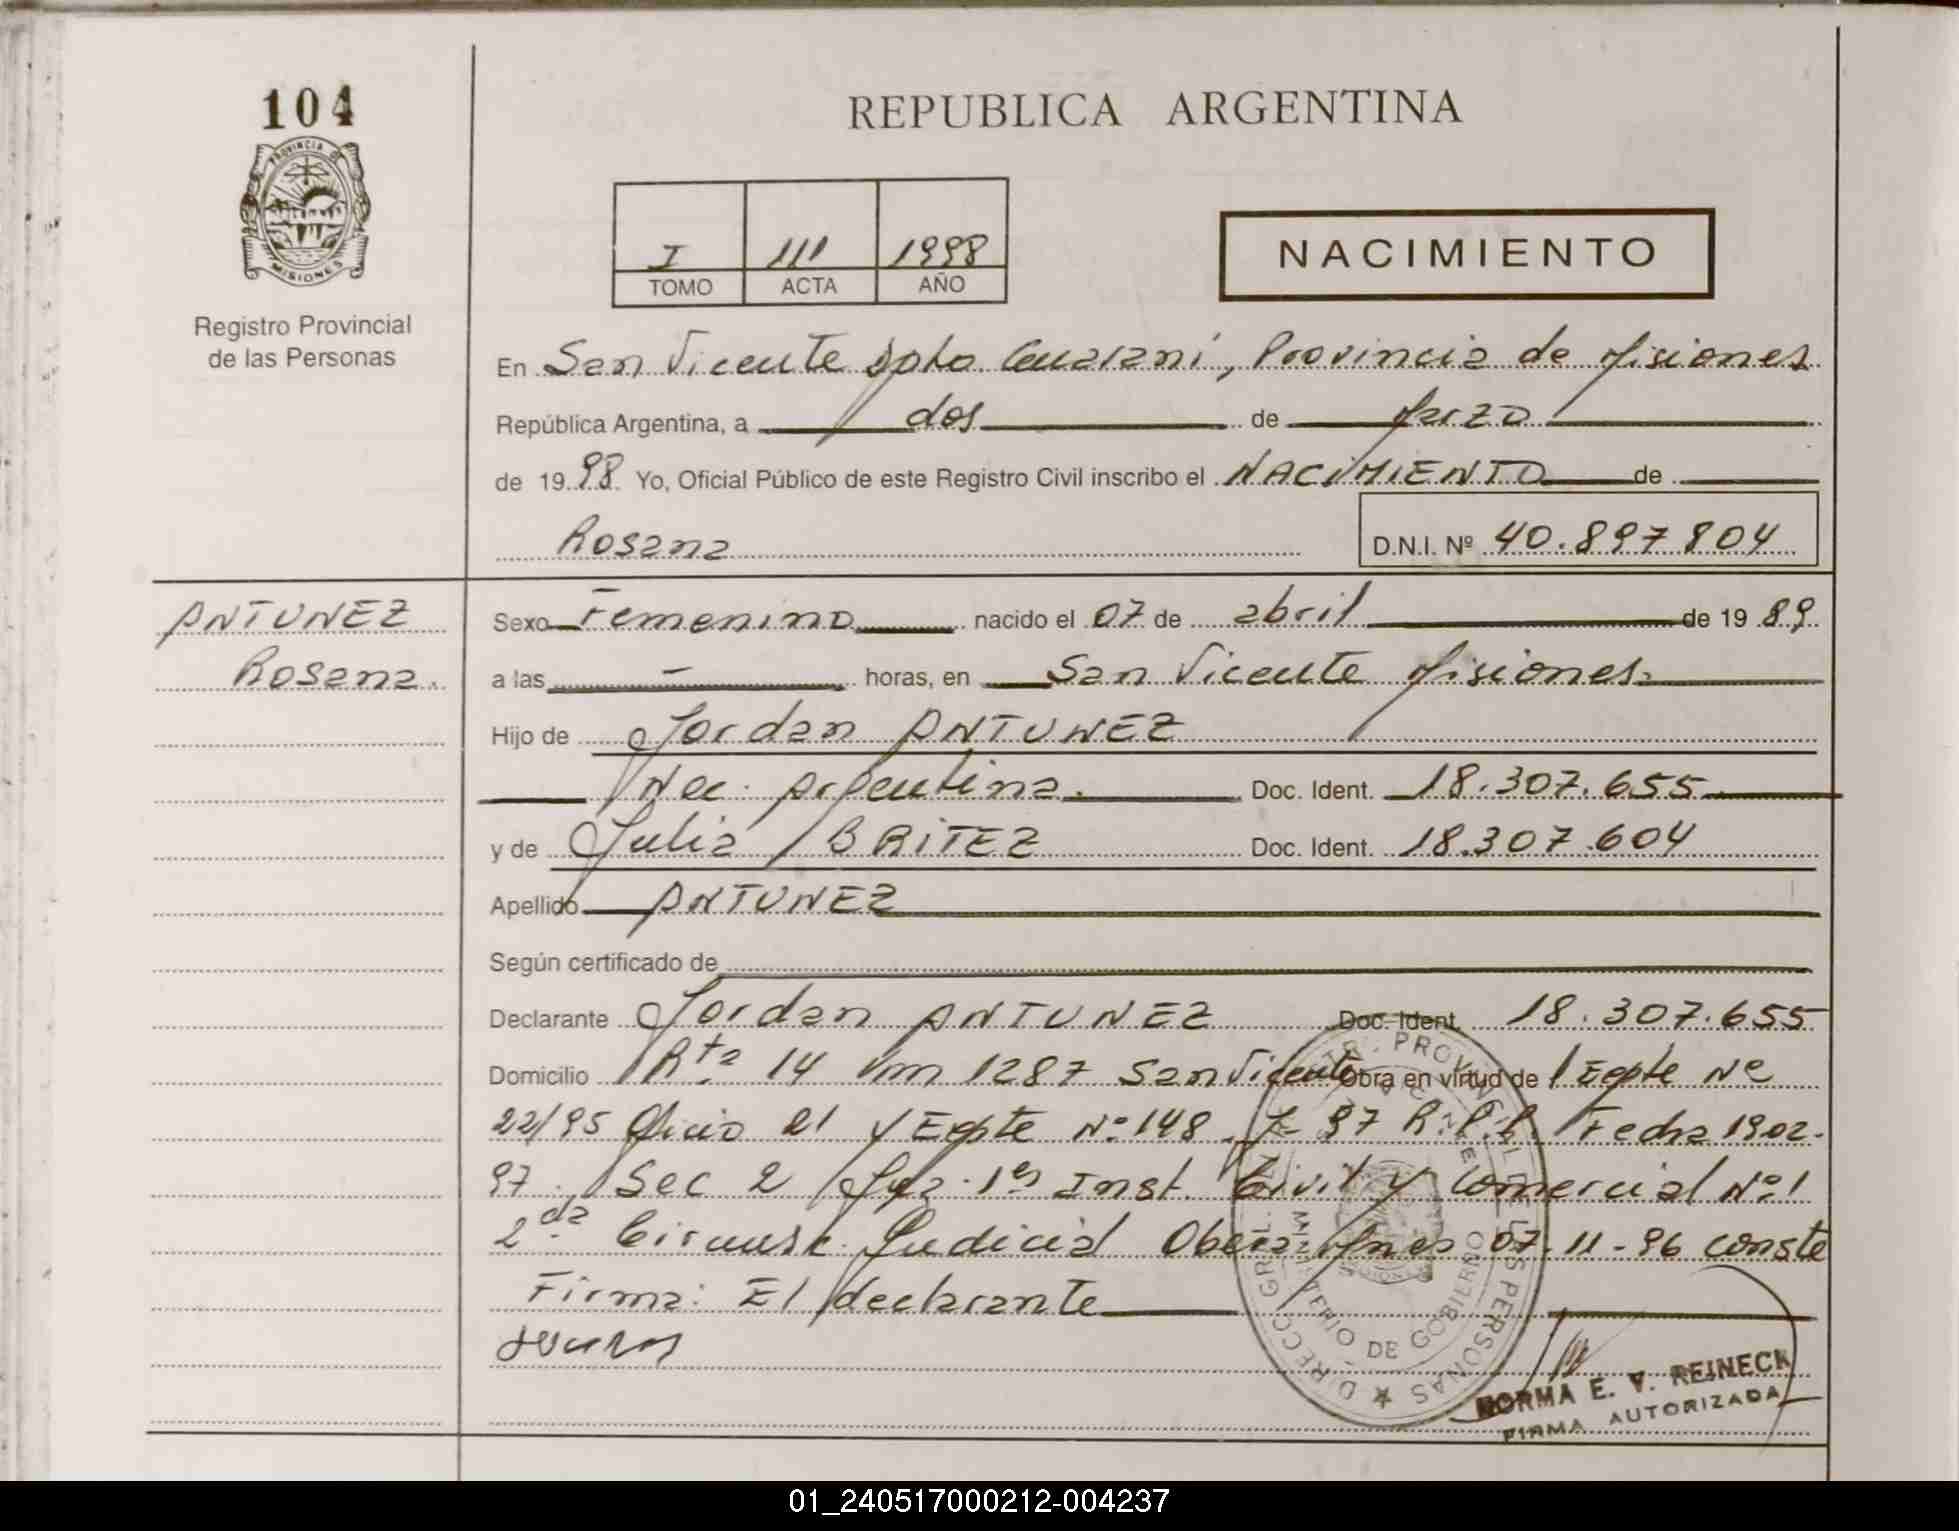 104
REPUBLICA ARGENTINA
PROVINCIA DE
MISIONES
Registro Provincial
de las Personas
I 111 1998
TOMO ACTA AÑO
NACIMIENTO
En San Vicente Dpto Guaraní, Provincia de Misiones
República Argentina, a dos de Marzo
de 1998 Yo, Oficial Público de este Registro Civil inscribo el NACIMIENTO de
Rosana D.N.I. Nº 40.897804
ANTUNEZ
Rosana.
Sexo Femenino nacido el 07 de abril de 1989
a las — horas, en San Vicente Misiones
Hijo de Jordan ANTUNEZ
Nac. Argentina. Doc. Ident. 18.307.655
y de Julia BRITEZ Doc. Ident. 18.307.604
Apellido ANTUNEZ
Según certificado de
Declarante Jordan ANTUNEZ Doc. Ident. 18.307.655
Domicilio Rta 14 Km 1287 San Vicente Obra en virtud de Expte Nº
22/95 Oficio 21 y Expte Nº 148 97 R.P.P. Fecha 1902-
97. Sec 2 Juz. 1ª Inst. Civil y Comercial Nº 1
2da Circunsc. Judicial Obera Mnes 07-11-96 conste
Firma: El declarante
NORMA E. V. REINECK
FIRMA AUTORIZADA
01_240517000212-004237